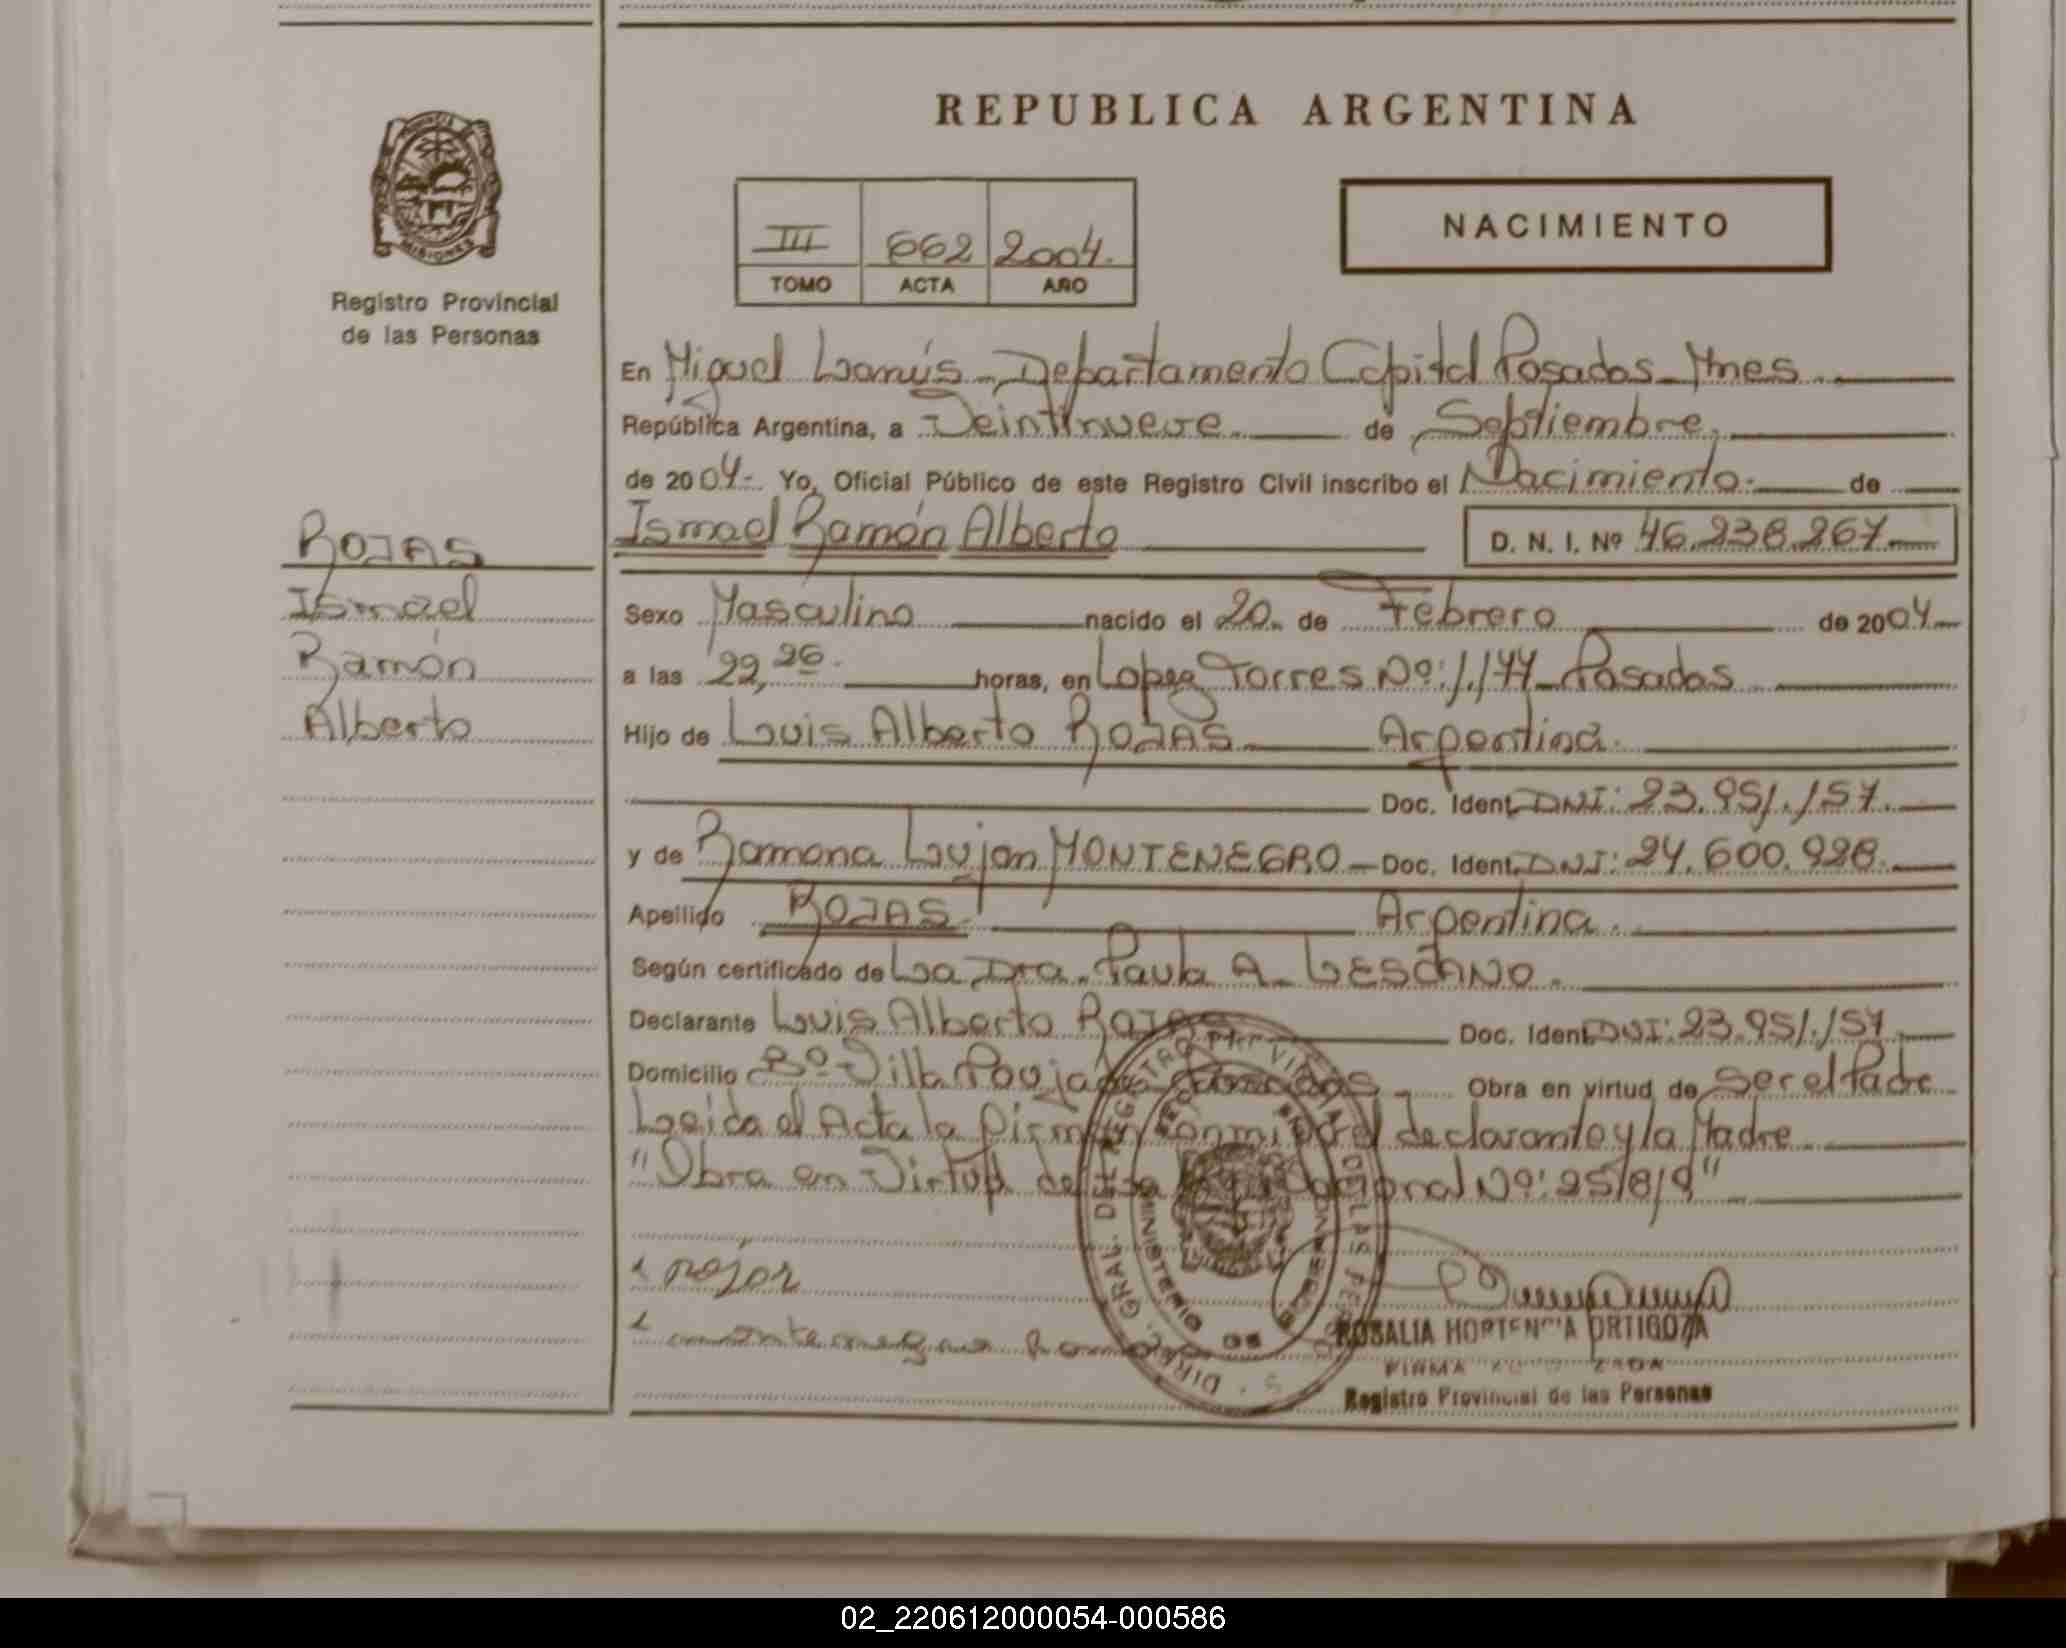 REPUBLICA ARGENTINA
PROVINCIA
MISIONES
Registro Provincial
de las Personas
III 662 2004.
TOMO ACTA AÑO
NACIMIENTO
En Miguel Lanús - Departamento Capital Posadas - Mnes.
República Argentina, a Veintinueve. de Septiembre,
de 2004-. Yo, Oficial Público de este Registro Civil inscribo el Nacimiento. de
Ismael Ramón Alberto D. N. I. Nº 46.238.267
ROJAS
Ismael
Ramón
Alberto
Sexo Masculino nacido el 20. de Febrero de 2004
a las 22,26. horas, en Lopez Torres Nº: 1.177 - Posadas
Hijo de Luis Alberto ROJAS Argentina.
Doc. Ident. DNI: 23.951.157.
y de Ramona Lujan MONTENEGRO - Doc. Ident. DNI: 24.600.928.
Apellido ROJAS. Argentina.
Según certificado de La Dra. Paula A. LESCANO.
Declarante Luis Alberto ROJAS Doc. Ident. DNI: 23.951.157
Domicilio Bº Villa Poujade Posadas Obra en virtud de Ser el Padre
Leida el Acta la firman conmigo el declarante y la Madre
"Obra en Virtud de la Ley Nacional Nº: 25/8/9"
rojas
montenegro
ROSALIA HORTENCIA ORTIGOZA
FIRMA AUTORIZADA
Registro Provincial de las Personas
02_220612000054-000586